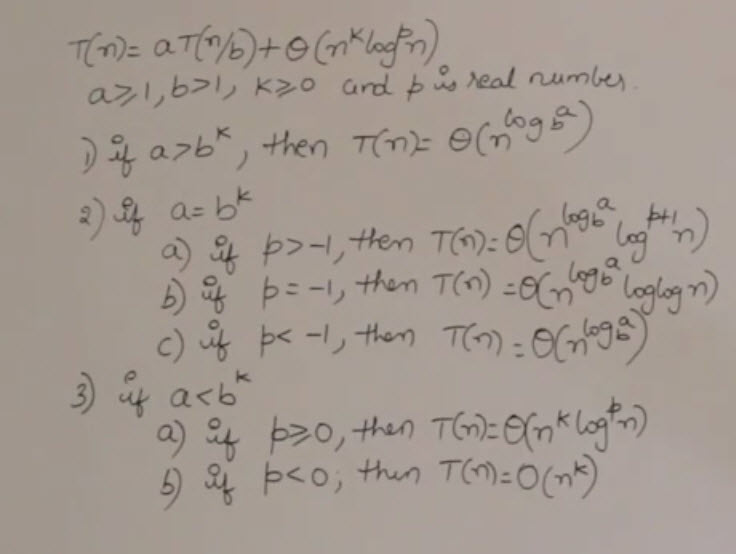 T(n)= aT(n/b)+ θ(n^k log^p n)
a≥1, b>1, k≥0 and p is real number.
1) if a>b^k, then T(n)= θ(n^log_b^a)
2) if a=b^k
a) if p>-1, then T(n)=θ(n^log_b^a log^p+1 n)
b) if p=-1, then T(n)=θ(n^log_b^a loglogn)
c) if p<-1, then T(n)=θ(n^log_b^a)
3) if a<b^k
a) if p≥0, then T(n)=θ(n^k log^p n)
b) if p<0, then T(n)=O(n^k)